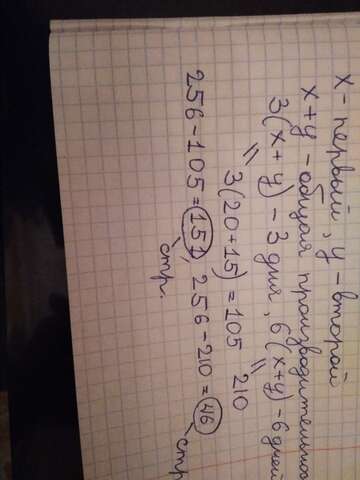 x - первый, y - второй
x+y - общая производительность
3(x+y) - 3 дня, 6(x+y) - 6 дней
3(20+15) = 105 210
256-105=151, 256-210=46
стр. стр